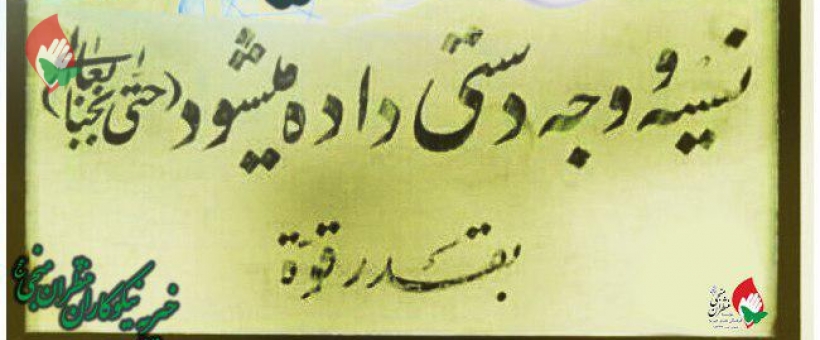 نسیه و وجه دستی داده میشود (حتی بجنابعالی)
بقدر قوّة
خیریه نیکوکاران منتظران منجی عج
منتظران منجی